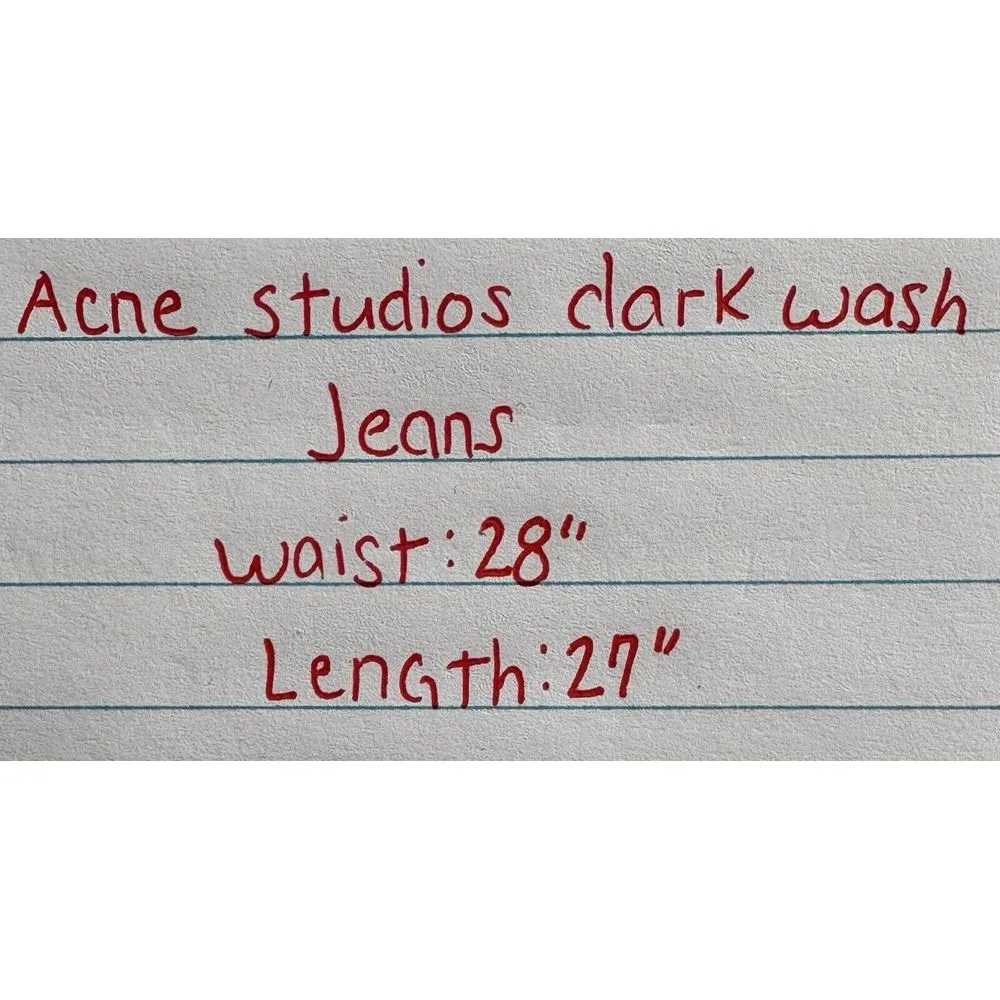 Acne studios dark wash
Jeans
waist: 28"
Length: 27"